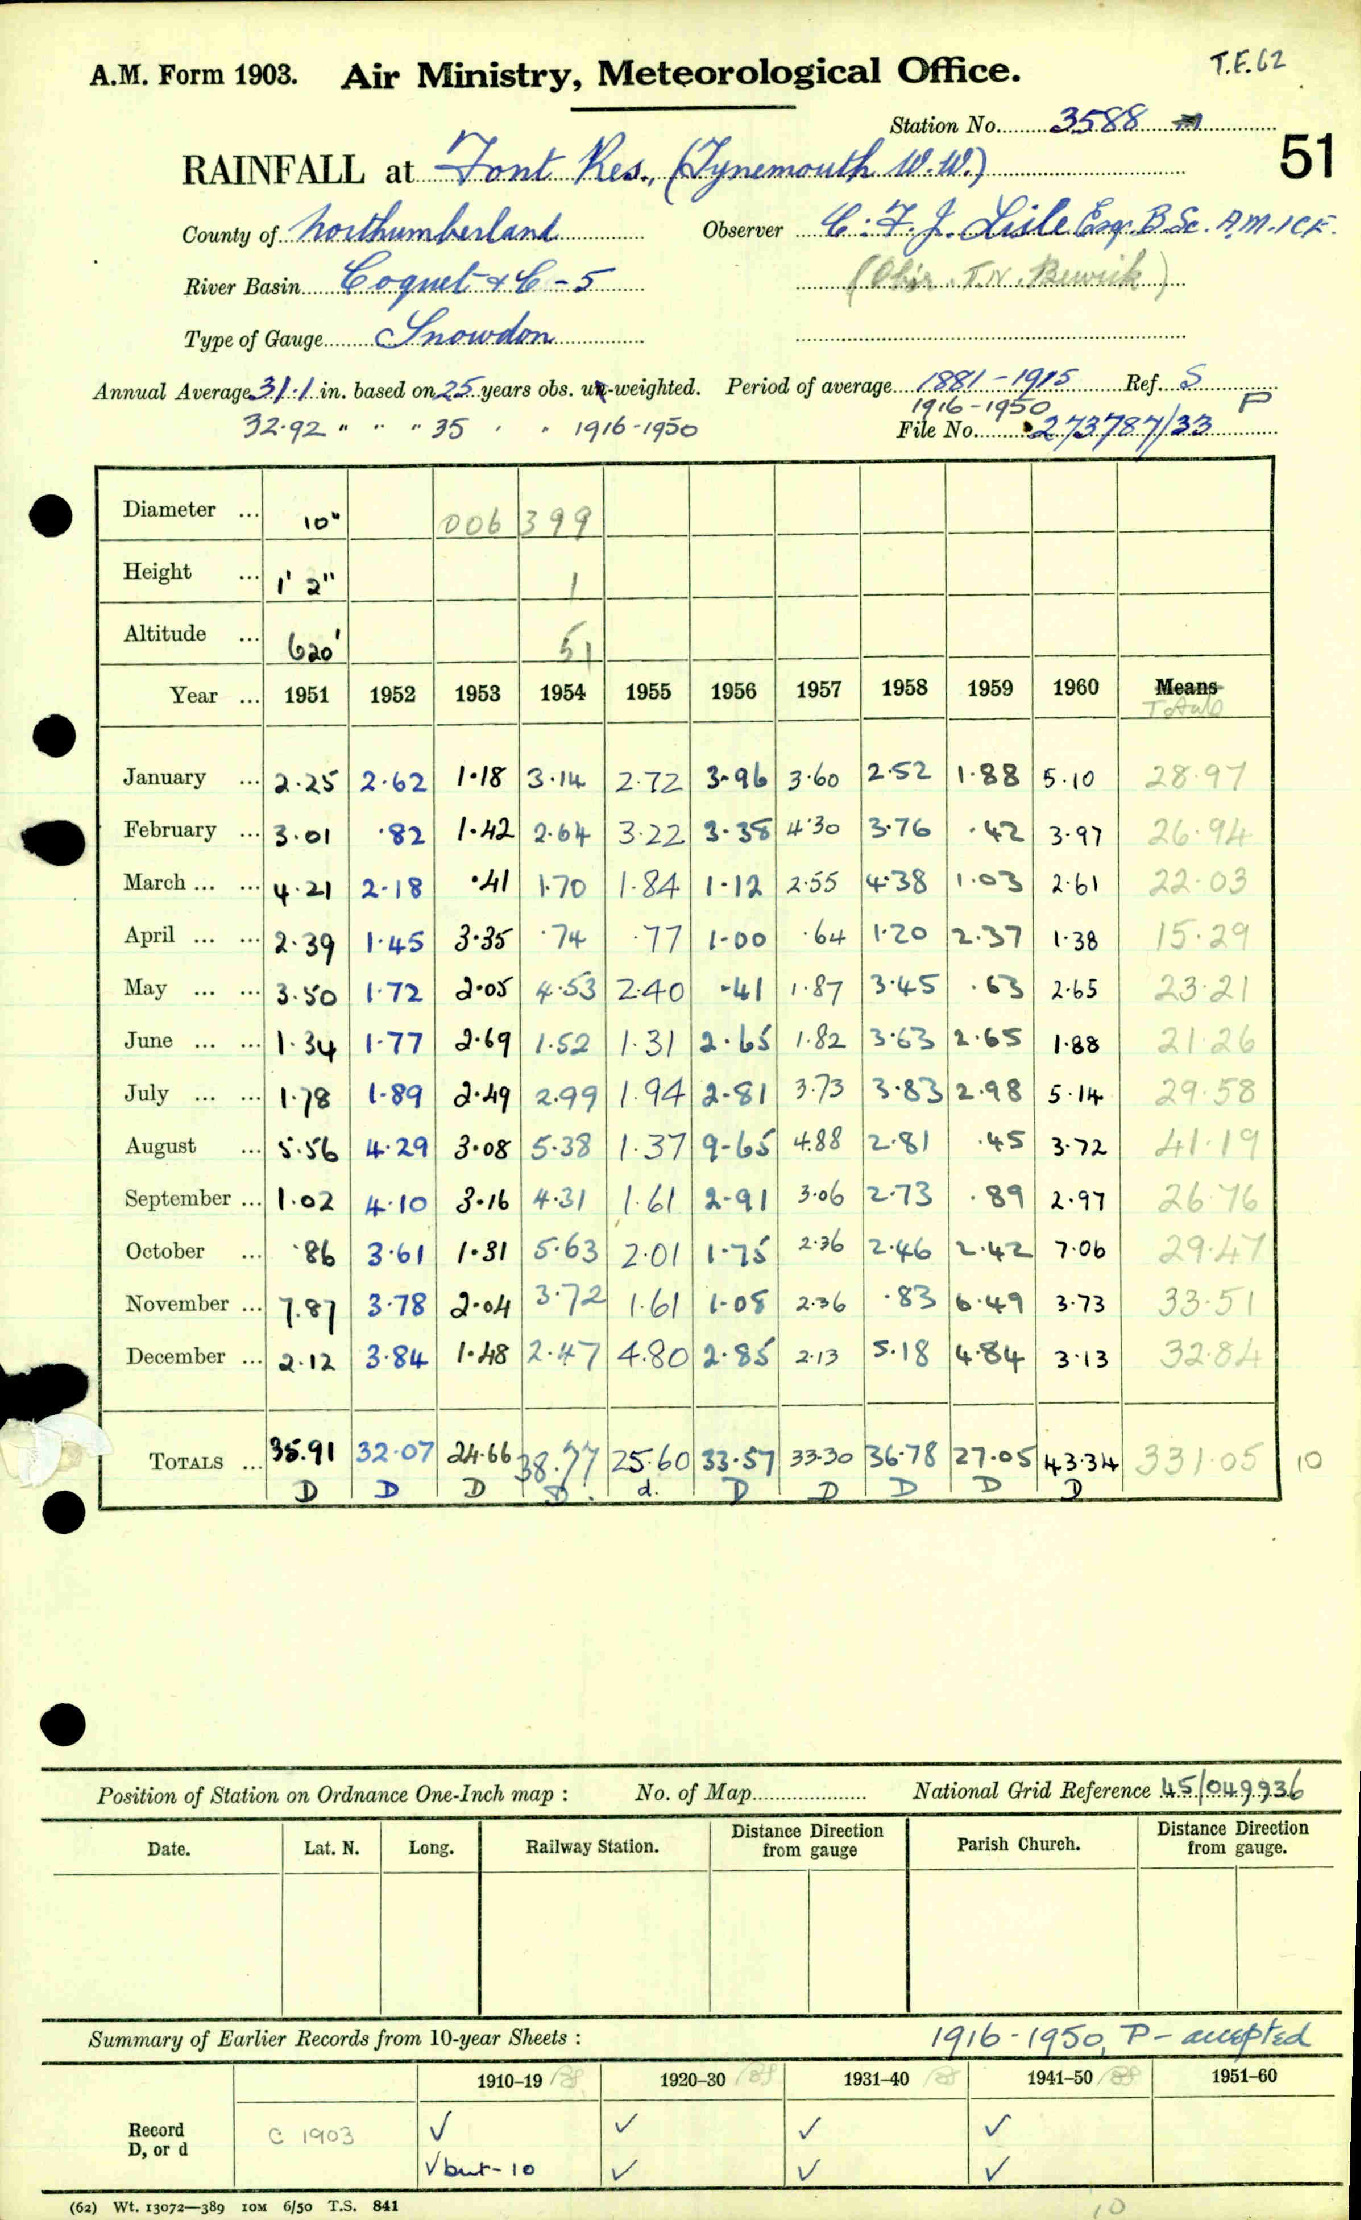 T.E.62
A.M. Form 1903. Air Ministry, Meteorological Office.
Station No. 3588
51
RAINFALL at Font Res., (Tynemouth W.W.)
County of Northumberland Observer C. F. J. Lisle Esq. B.Sc. A.M.I.C.E.
River Basin Coquet & C - 5 (Obsr. T.W. Bewick)
Type of Gauge Snowdon
Annual Average 31.1 in. based on 25 years obs. un-weighted. Period of average 1881-1915 Ref. S
1916-1950 P
32.92 " " " 35 " " 1916-1950 File No. 273787/33
Diameter ... 10" 006 399
Height ... 1' 2" 1
Altitude ... 620' 51
Year ... 1951 1952 1953 1954 1955 1956 1957 1958 1959 1960 Means
Totals
January ... 2.25 2.62 1.18 3.14 2.72 3.96 3.60 2.52 1.88 5.10 28.97
February ... 3.01 .82 1.42 2.64 3.22 3.38 4.30 3.76 .42 3.97 26.94
March ... ... 4.21 2.18 .41 1.70 1.84 1.12 2.55 4.38 1.03 2.61 22.03
April ... ... 2.39 1.45 3.35 .74 .77 1.00 .64 1.20 2.37 1.38 15.29
May ... ... 3.50 1.72 2.05 4.53 2.40 .41 1.87 3.45 .63 2.65 23.21
June ... ... 1.34 1.77 2.69 1.52 1.31 2.65 1.82 3.63 2.65 1.88 21.26
July ... ... 1.78 1.89 2.49 2.99 1.94 2.81 3.73 3.83 2.98 5.14 29.58
August ... 5.56 4.29 3.08 5.38 1.37 9.65 4.88 2.81 .45 3.72 41.19
September ... 1.02 4.10 3.16 4.31 1.61 2.91 3.06 2.73 .89 2.97 26.76
October ... .86 3.61 1.31 5.63 2.01 1.75 2.36 2.46 2.42 7.06 29.47
November ... 7.87 3.78 2.04 3.72 1.61 1.08 2.36 .83 6.49 3.73 33.51
December ... 2.12 3.84 1.48 2.47 4.80 2.85 2.13 5.18 4.84 3.13 32.84
TOTALS ... 35.91 32.07 24.66 38.77 25.60 33.57 33.30 36.78 27.05 43.34 331.05 10
D D D D. d. D D D D D
Position of Station on Ordnance One-Inch map : No. of Map National Grid Reference 45/049936
Date. Lat. N. Long. Railway Station. Distance Direction from gauge Parish Church. Distance Direction from gauge.
Summary of Earlier Records from 10-year Sheets : 1916-1950, P - accepted
1910-19 1920-30 1931-40 1941-50 1951-60
Record C 1903 ✓ ✓ ✓ ✓
D, or d ✓but-10 ✓ ✓ ✓
(62) Wt. 13072—389 10M 6/50 T.S. 841 10